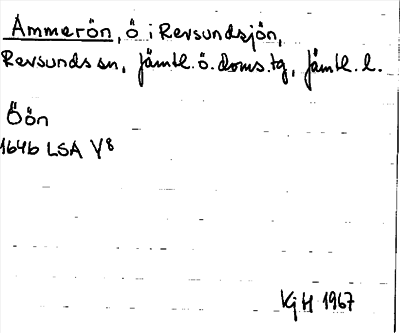 Ammerön, ö i Revsundssjön,
Revsunds sn, Jämtl. ö. doms.tg, Jämtl. l.
Öön
1646 LSA Y8
KgH 1967